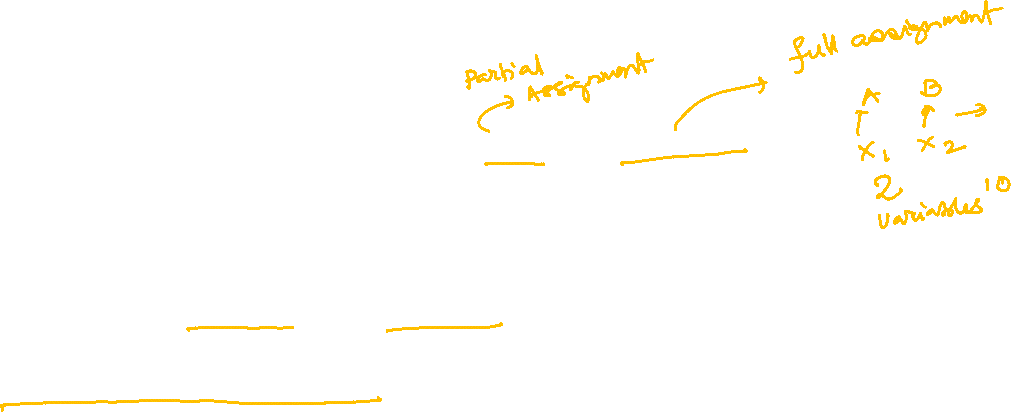 Partial
Assignment
full assignment
A B
x1 x2
2
variables 10